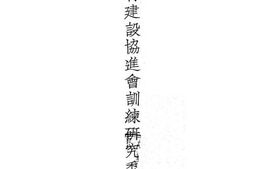 建設協進會訓練研究